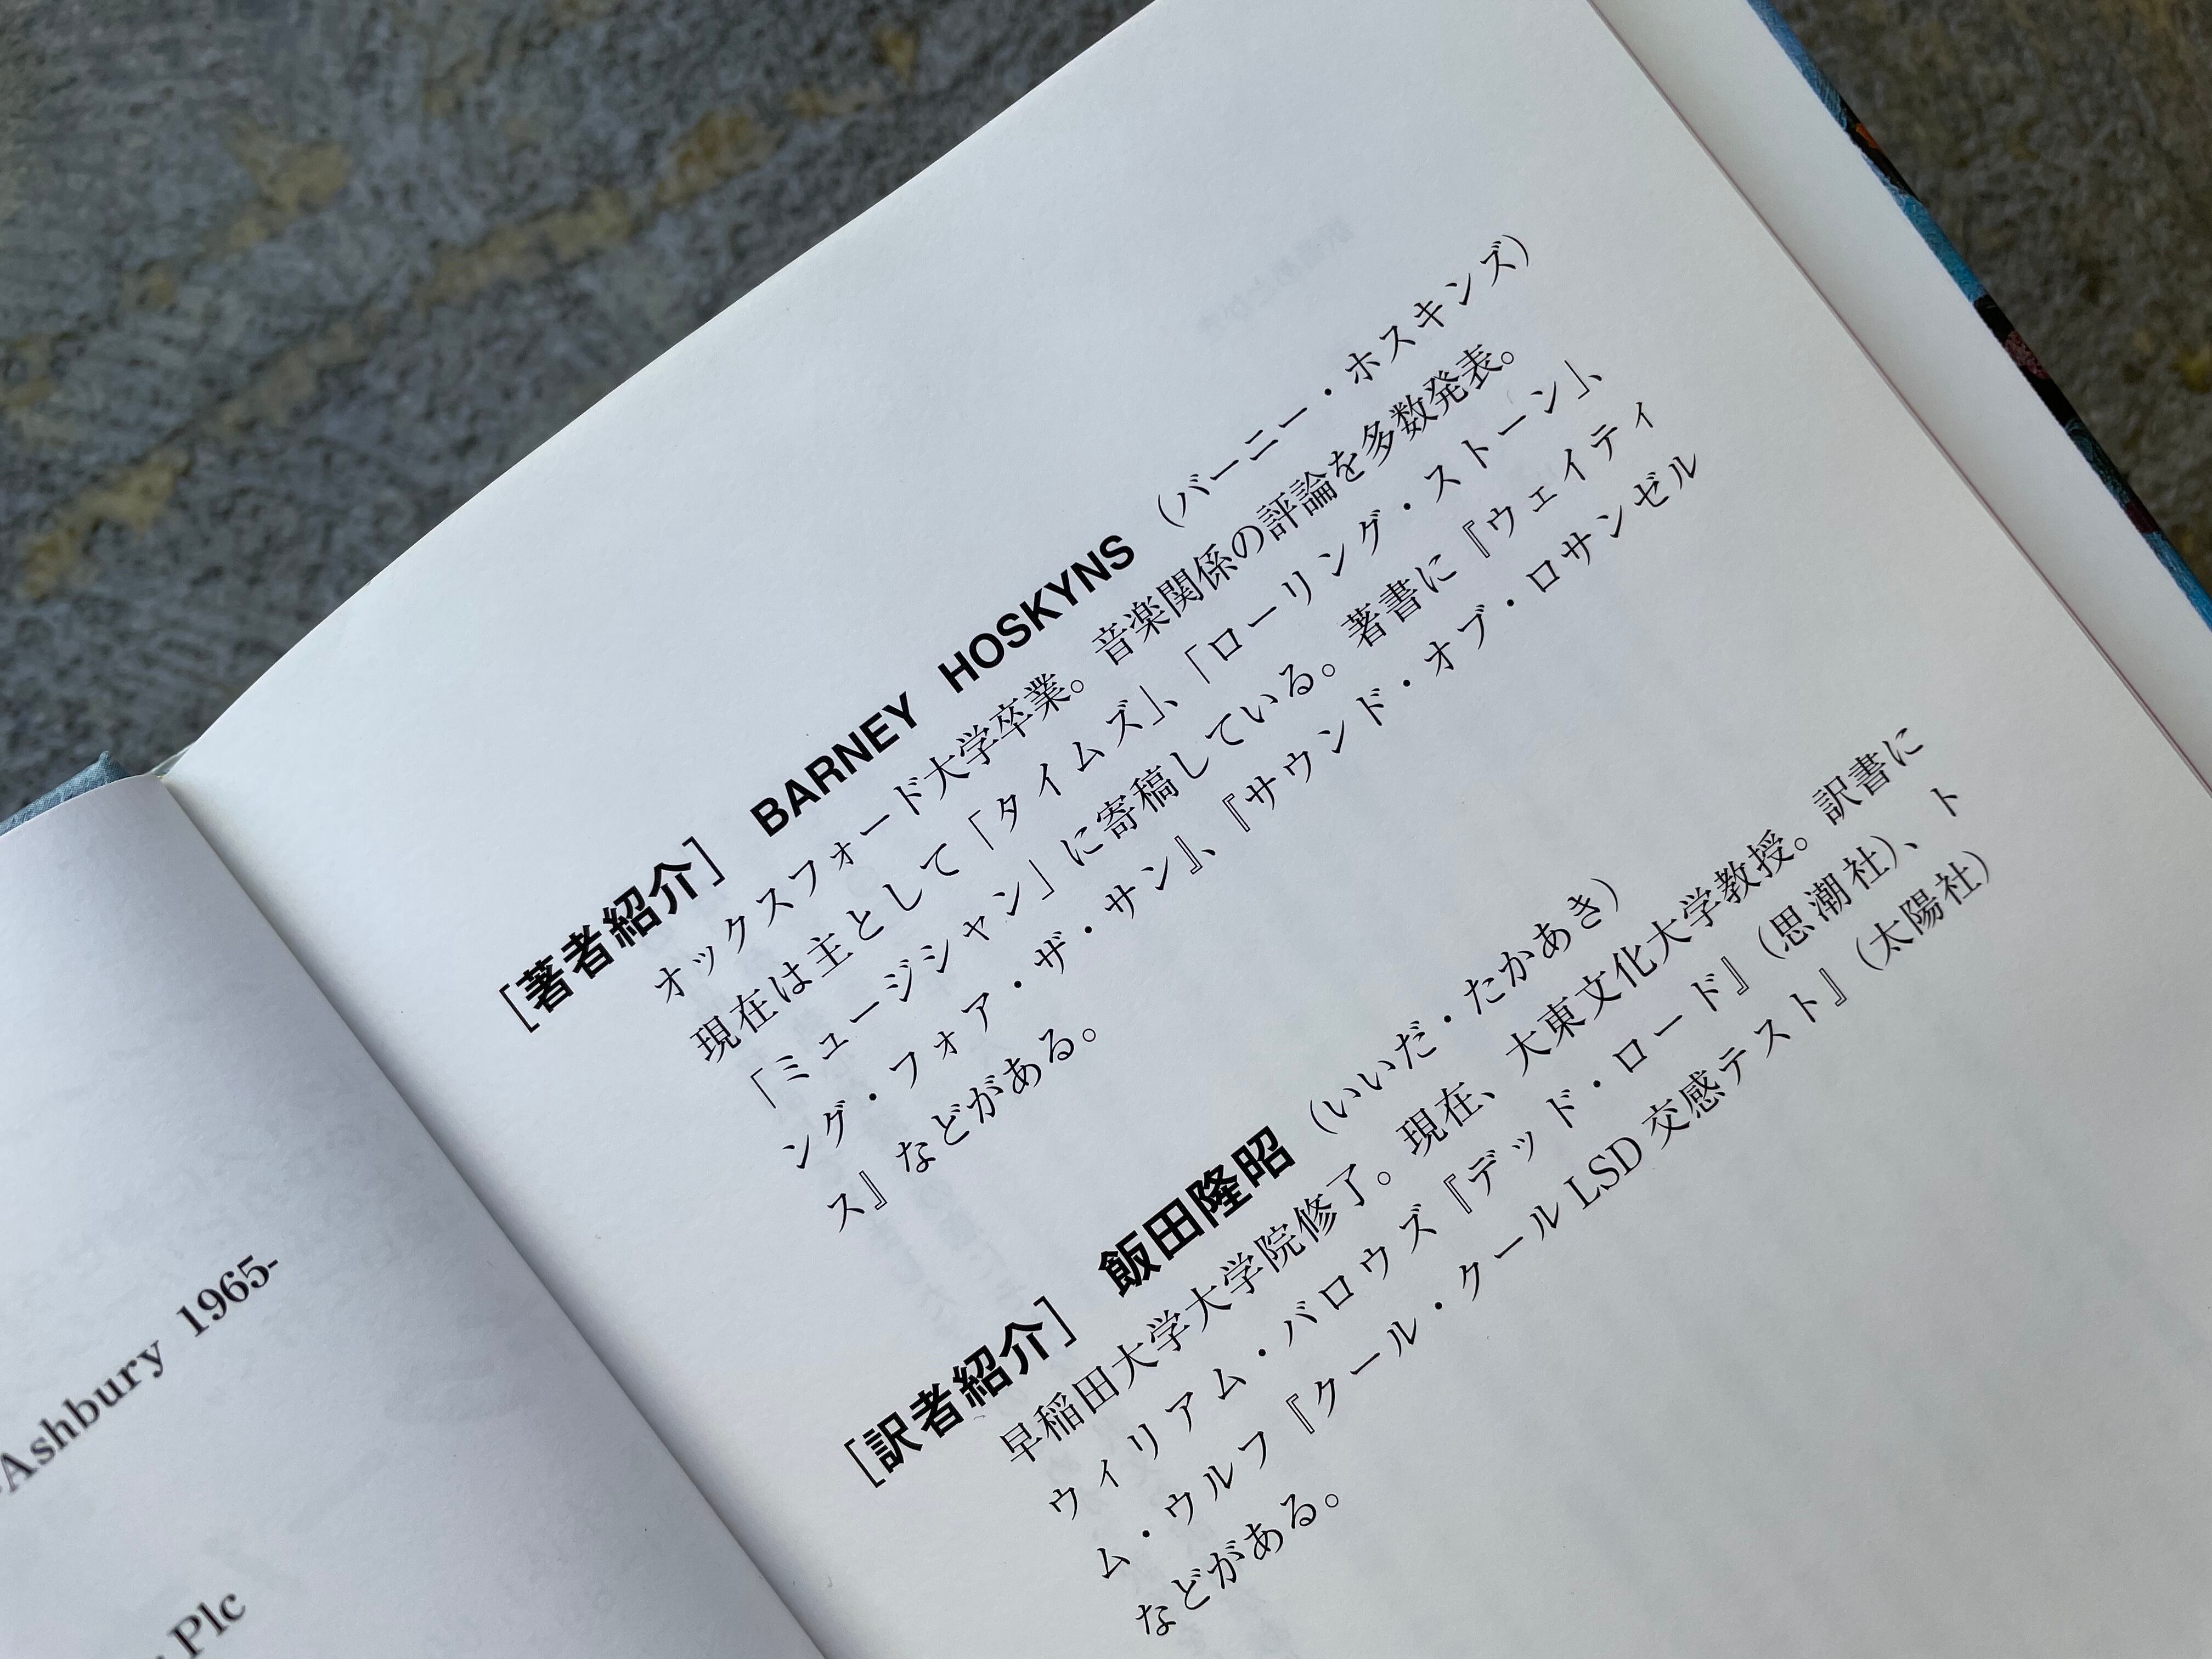 Ashbury 1965-
Plc
[著者紹介] BARNEY HOSKYNS (バーニー・ホスキンズ)
オックスフォード大学卒業。音楽関係の評論を多数発表。
現在は主として「タイムズ」、「ローリング・ストーン」、
「ミュージシャン」に寄稿している。著書に『ウェイティ
ング・フォア・ザ・サン』、『サウンド・オブ・ロサンゼル
ス』などがある。
[訳者紹介] 飯田隆昭 (いいだ・たかあき)
早稲田大学大学院修了。現在、大東文化大学教授。訳書に
ウィリアム・バロウズ『デッド・ロード』(思潮社)、ト
ム・ウルフ『クール・クールLSD交感テスト』(太陽社)
などがある。